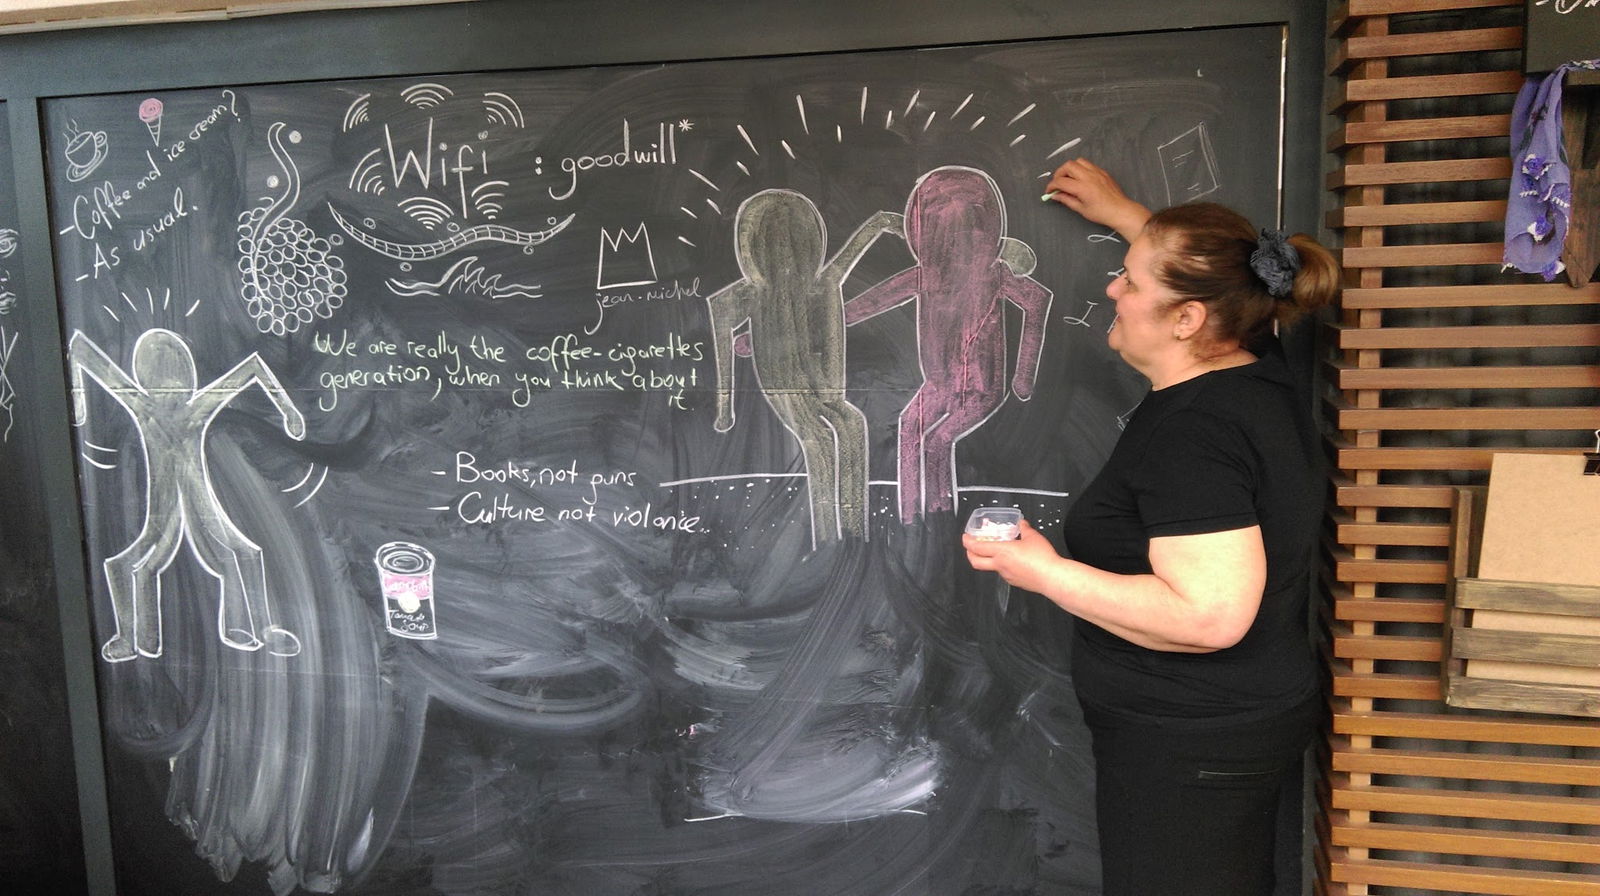 - Coffee and ice cream?
- As usual.
Wifi : goodwill*
jean-michel
We are really the coffee-cigarettes
generation, when you think about
it.
- Books, not guns
- Culture not violence..
Tomato
Soup